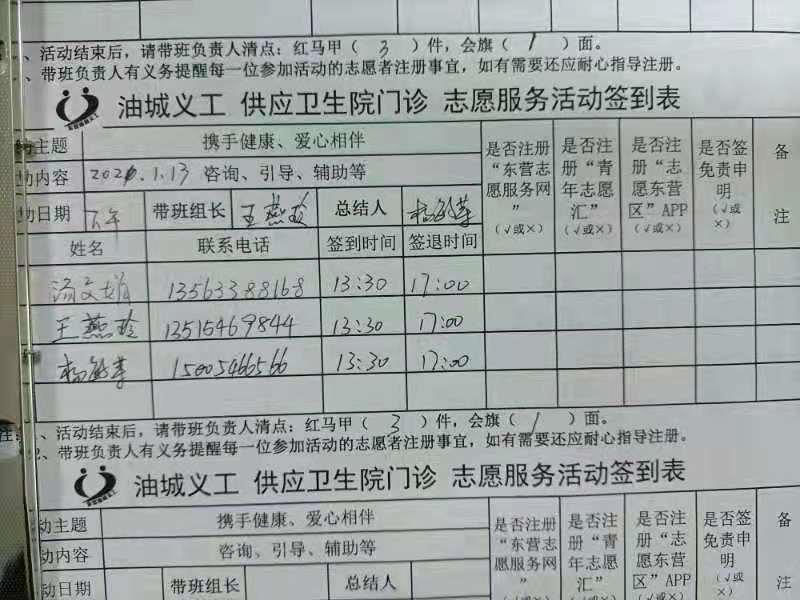 、活动结束后，请带班负责人清点：红马甲（ 3 ）件，会旗（ 1 ）面。
、带班负责人有义务提醒每一位参加活动的志愿者注册事宜，如有需要还应耐心指导注册。
油城义工 供应卫生院门诊 志愿服务活动签到表
动主题 携手健康、爱心相伴 是否注册“东营志愿服务网”（√或×） 是否注册“青年志愿汇”（√或×） 是否注册“志愿东营区”APP（√或×） 是否签免责申明（√或×） 备注
动内容 2021.1.13 咨询、引导、辅助等
动日期 下午 带班组长 王燕玲 总结人
姓名 联系电话 签到时间 签退时间
汤文娟 13563388168 13:30 17:00
王燕玲 13515469844 13:30 17:00
15005466566 13:30 17:00
注 、活动结束后，请带班负责人清点：红马甲（ 3 ）件，会旗（ 1 ）面。
、带班负责人有义务提醒每一位参加活动的志愿者注册事宜，如有需要还应耐心指导注册。
油城义工 供应卫生院门诊 志愿服务活动签到表
动主题 携手健康、爱心相伴 是否注册“东营志愿服务网”（√或×） 是否注册“青年志愿汇” 是否注册“志愿东营区”APP 是否签免责申明（√或×） 备注
动内容 咨询、引导、辅助等
动日期 带班组长 总结人